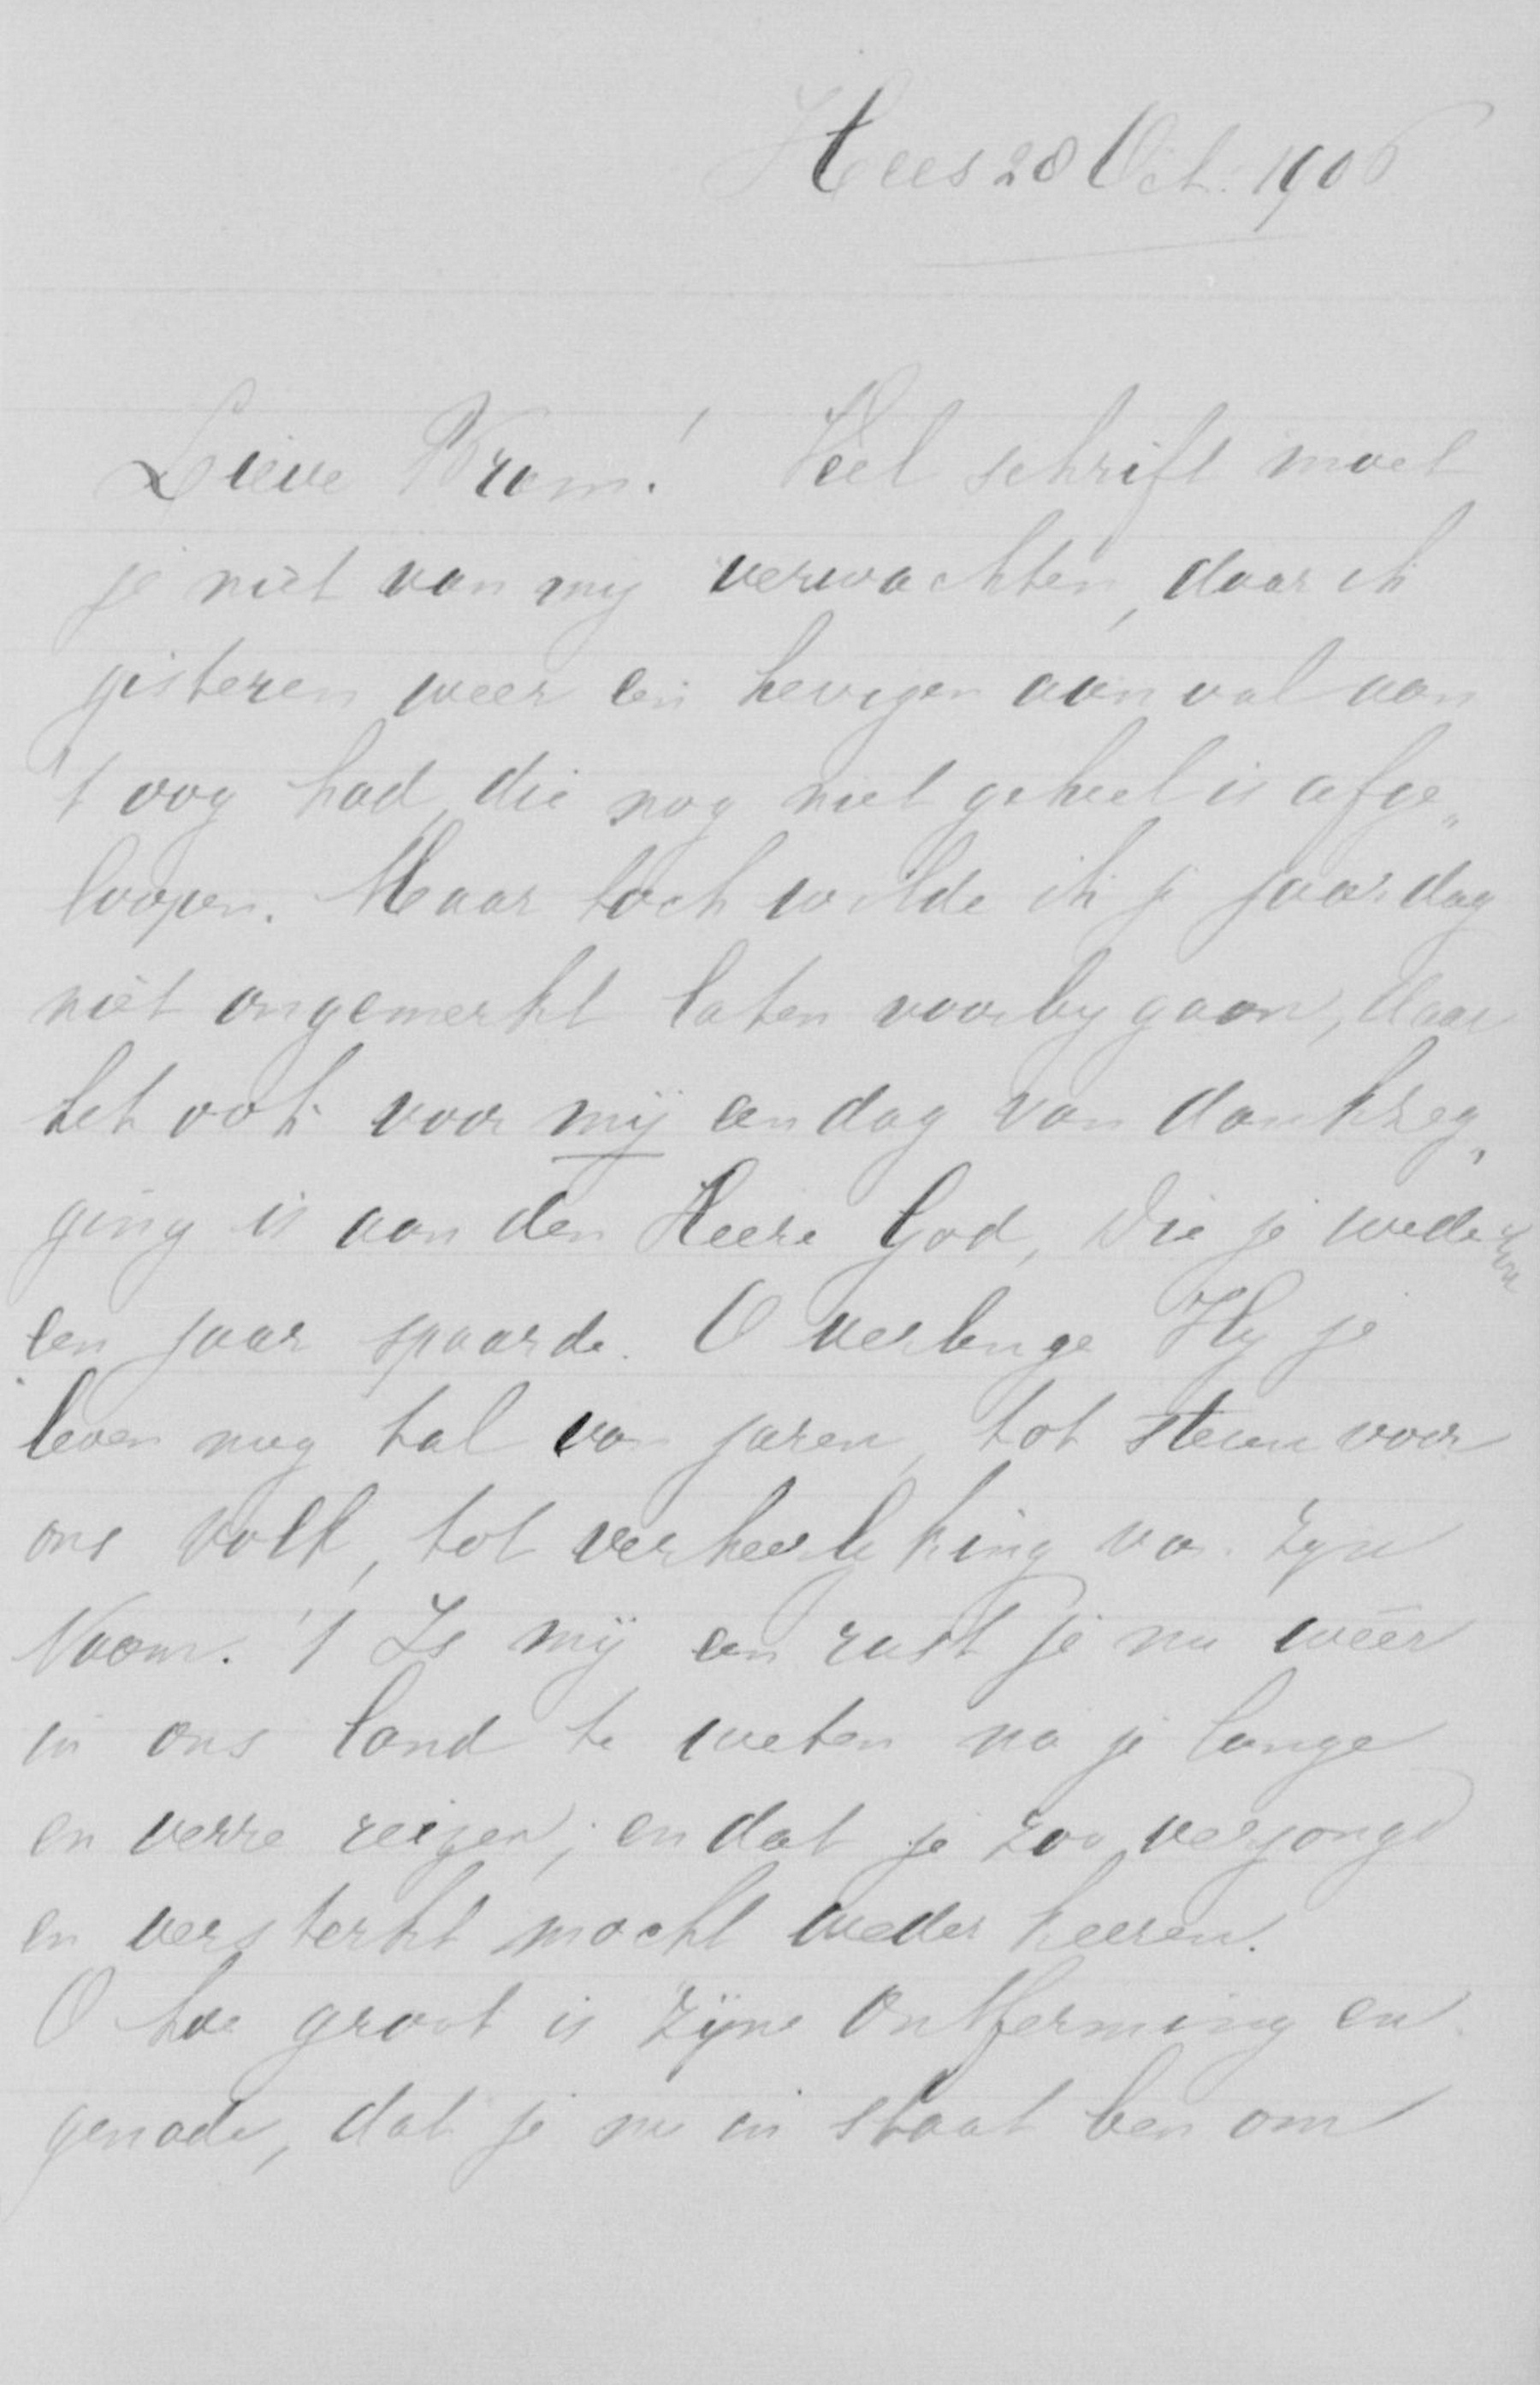 Hees 28 Oct. 1906
Lieve Bram! Veel schrift moet
je niet van mij verwachten, daar ik
gisteren weer een hevigen aanval aan
't oog had, die nog niet geheel is afge„
loopen. Maar toch wilde ik je jaardag
niet ongemerkt laten voorbij gaan, daar
het ook voor mij een dag van dankzeg„
ging is aan den Heere God, Die je wederom
een jaar spaarde. O verlenge Hij je
leven nog tal van jaren, tot steun voor
ons volk, tot verheerlijking van Zijn
Naam. 't Is mij een rust je nu wéér
in ons land te weten na je lange
en verre reizen; en dat je zoo verjongd
en versterkt mocht weder keeren.
O hoe groot is Zijne Ontferming en
genade, dat je nu in staat ben om